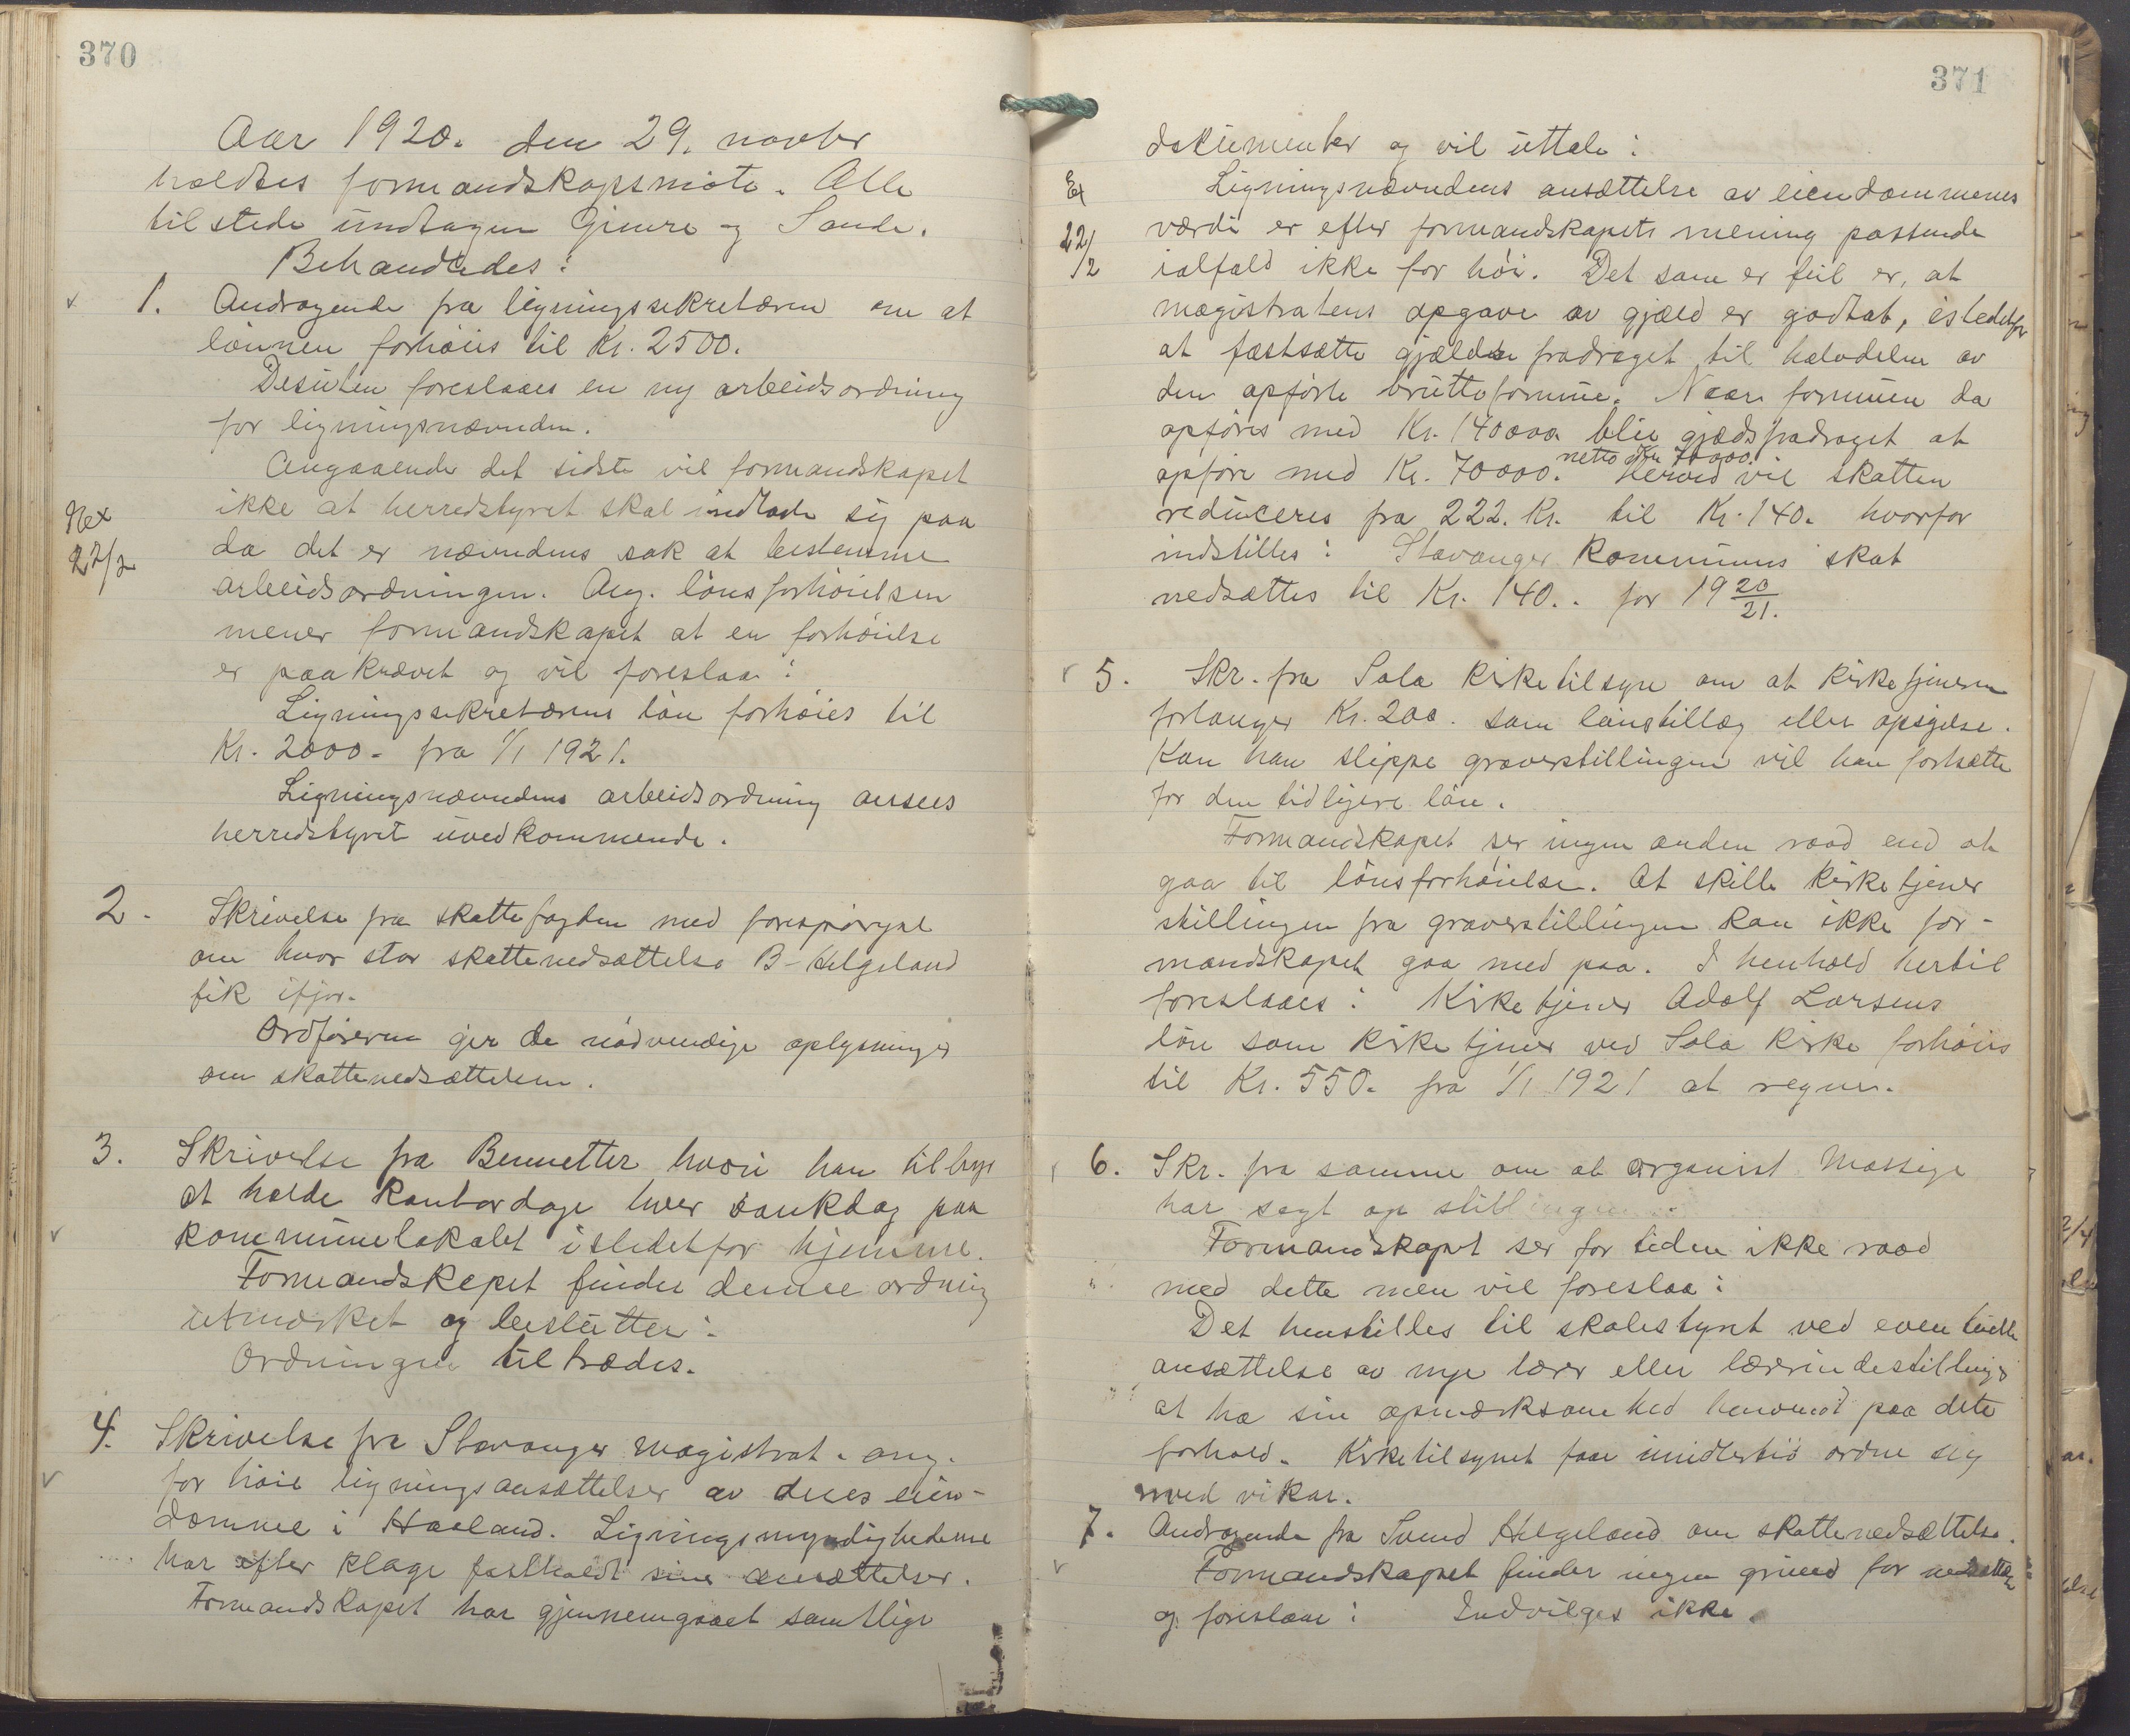 370
Aar 1920. den 29. novbr
holdtes formandskapsmöte. Alle
tilstede undtagen Gimre og Sande.
Behandledes:
1. Andragende fra ligningssekretæren om at
lönnen forhöies til Kr. 2500.
Desuten foreslaaes en ny arbeidsordning
for ligningsnævnden.
Angaaende det sidste vil formandskapet
ikke at herredstyret skal indlade sig paa
22/2
da det er nævndens sak at bestemme
arbeidsordningen. Ang. lönsforhöielsen
mener formandskapet at en forhöielse
er paakrævet og vil foreslaa:
Ligningssekretærens lön forhöies til
Kr. 2000.- fra 1/1 1921.
Ligningsnævndens arbeidsordning ansees
herredstyret uvedkommende.
2. Skrivelse fra skattefogden med forespörgsel
om hvor stor skattenedsættelse B. Helgeland
fik ifjor.
Ordföreren gir de nödvendige oplysninger
om skattenedsættelsen.
3. Skrivelse fra Bennetter hvori han tilbyr
at holde kontordage hver sokndag paa
kommunelokalet istedetfor hjemme.
Formandskapet finder denne ordning
utmerket og beslutter:
Ordningen tiltrædes.
4. Skrivelse fra Stavanger magistrat. ang.
for höie ligningsansættelser av dens eien-
domme i Haaland. Ligningsmyndighetene
har efter klage fastholdt sine ansættelser.
Formandskapet har gjennemgaaet samtlige
371
dokumenter og vil uttale:
Ligningsnævndens ansættelse av eiendommenes
22/2
værdi er efter formandskapets mening passende
ialfald ikke for höi. Det som er feil er, at
magistratens opgave av gjæld er godtat, istedetfor
at fastsætte gjælds fradraget til halvdelen av
den opförte bruttoformue. Naar formuen da
opföres med Kr. 140000 blir gjældsfradraget at
netto Kr. 70000.
opföre med Kr. 70000. Herved vil skatten
reduceres fra 222. Kr. til Kr. 140. hvorfor
indstilles: Stavanger kommunes skat
nedsættes til Kr. 140.. for 19 20/21.
5. Skr. fra Sola kirketilsyn om at kirketjeneren
forlanger Kr. 200. som lönstillæg eller opsigelse.
Kan han slippe graverstillingen vil han fortsætte
for den tidligere lön.
Formandskapet ser ingen anden raad end at
gaa til lönsforhöielse. At skille kirketjener
stillingen fra graverstillingen kan ikke for-
mandskapet gaa med paa. I henhold hertil
foreslaaes: Kirketjener Adolf Larsens
lön som kirketjener ved Sola kirke forhöies
til Kr. 550. fra 1/1 1921 at regne.
6. Skr. fra samme om at organist Massige
har sagt op stillingen.
Formandskapet ser for tiden ikke raad
med dette men vil foreslaa:
Det henstilles til skolestyret ved eventuelle
ansættelse av nye lærer eller lærerindestillinger
at ha sin opmerksomhed henvendt paa dete
forhold. Kirketilsynet faar imidlertid ordne sig
med vikar.
7. Andragende fra Svend Helgeland om skattenedsættelse.
Formandskapet finder ingen grund for nedsættelse
og foreslaar: Indvilges ikke.